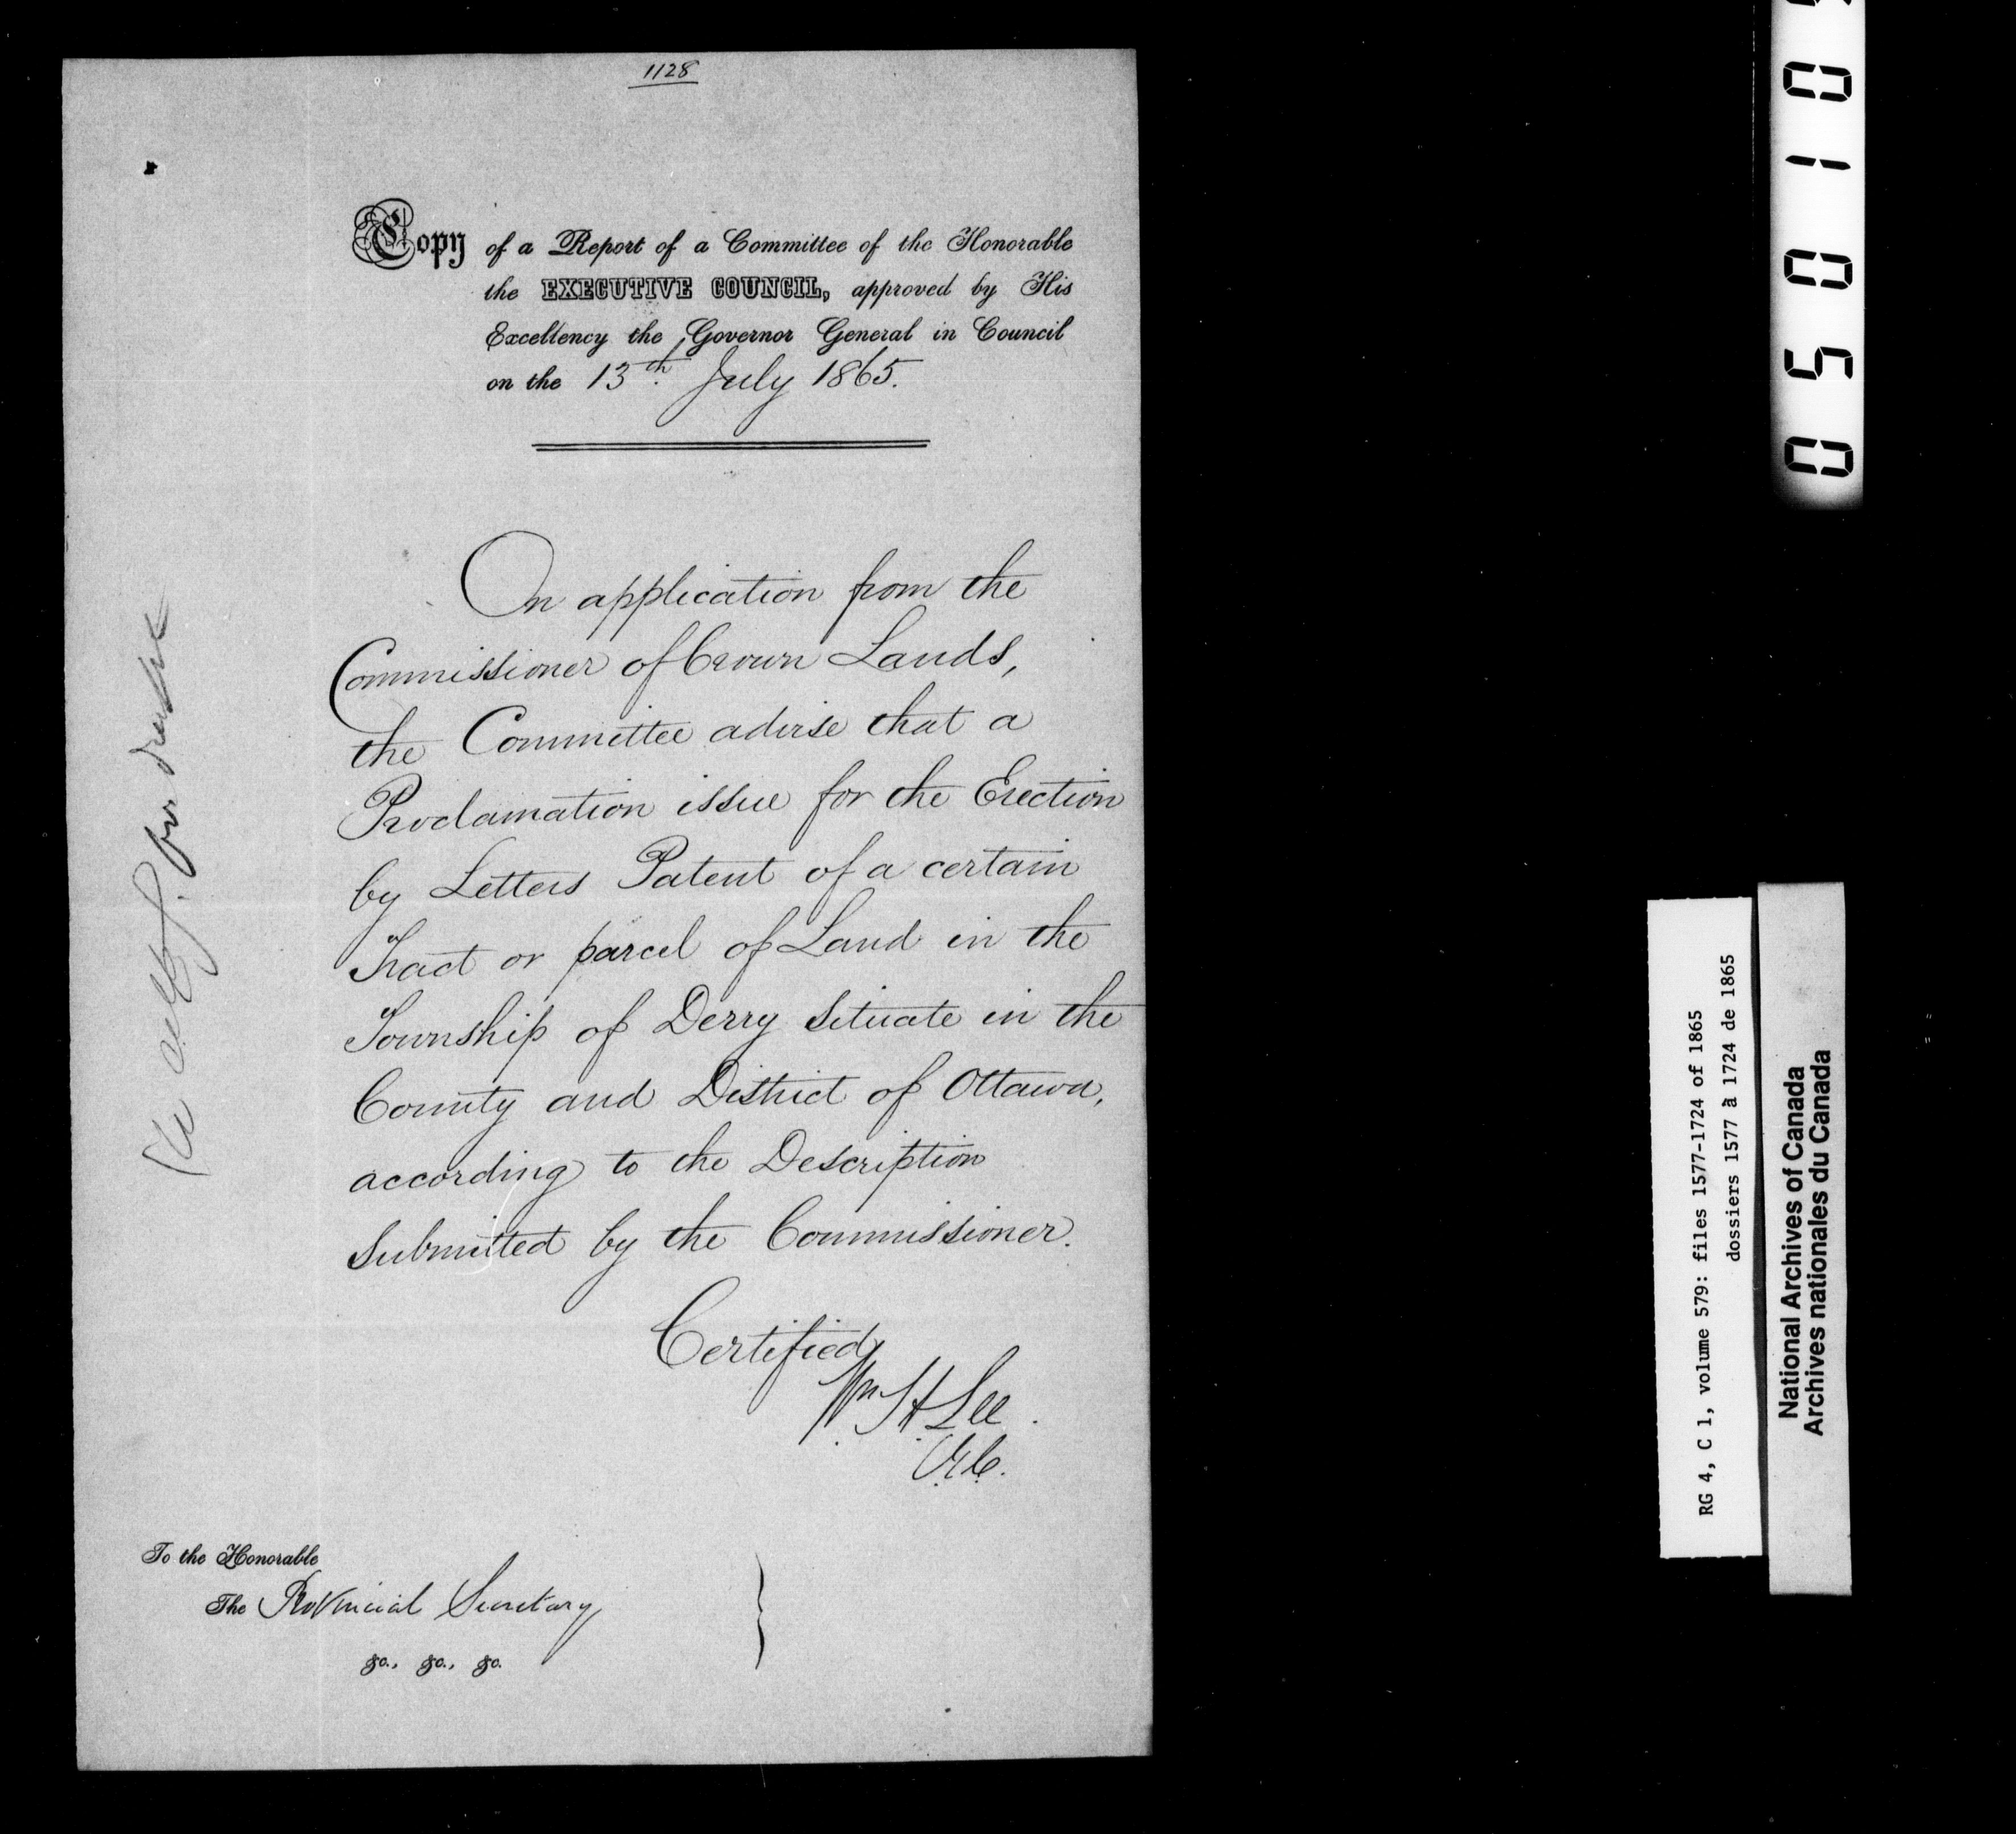 1128
Copy of a Report of a Committee of the Honorable
the EXECUTIVE COUNCIL, approved by His
Excellency the Governor General in Council
on the 13th. July 1865.
On application from the
Commissioner of Crown Lands,
the Committee advise that a
Proclamation issue for the Erection
by Letters Patent of a certain
Tract or parcel of Land in the
Township of Derry situate in the
County and District of Ottawa,
according to the Description
submitted by the Commissioner.
Certified
Wm H Lee.
C.E.C.
To the Honorable
The Provincial Secretary
&c., &c., &c.
for
0 5 0 1 0
RG 4, C 1, volume 579: files 1577-1724 of 1865
dossiers 1577 à 1724 de 1865
National Archives of Canada
Archives nationales du Canada